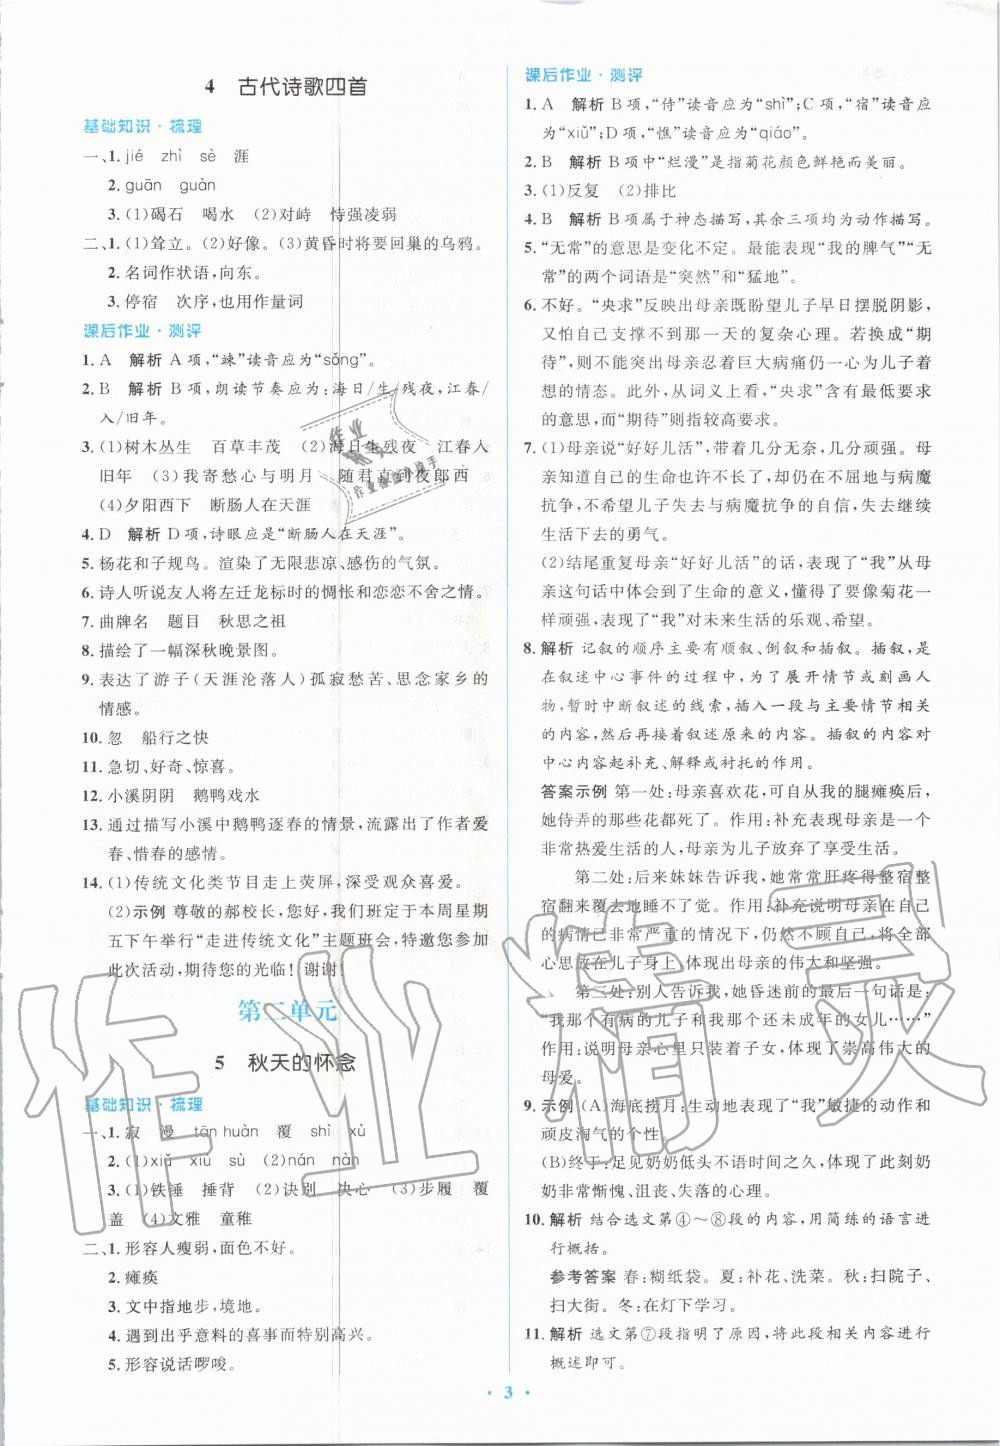 4 古代诗歌四首
基础知识·梳理
一、1. jié zhì sè 涯
2. guān guàn
3. (1)碣石 喝水 (2)对峙 恃强凌弱
二、1. (1)耸立。(2)好像。(3)黄昏时将要回巢的乌鸦。
2. 名词作状语,向东。
3. 停宿 次序,也用作量词
课后作业·测评
1. A 解析 A项,“竦”读音应为“sǒng”。
2. B 解析 B项,朗读节奏应为:海日/生/残夜,江春/
入/旧年。
3. (1)树木丛生 百草丰茂 (2)海日生残夜 江春入
旧年 (3)我寄愁心与明月 随君直到夜郎西
(4)夕阳西下 断肠人在天涯
4. D 解析 D项,诗眼应是“断肠人在天涯”。
5. 杨花和子规鸟。渲染了无限悲凉、感伤的气氛。
6. 诗人听说友人将左迁龙标时的惆怅和恋恋不舍之情。
7. 曲牌名 题目 秋思之祖
8. 描绘了一幅深秋晚景图。
9. 表达了游子(天涯沦落人)孤寂愁苦、思念家乡的
情感。
10. 忽 船行之快
11. 急切、好奇、惊喜。
12. 小溪阴阴 鹅鸭戏水
13. 通过描写小溪中鹅鸭逐春的情景,流露出了作者爱
春、惜春的感情。
14. (1)传统文化类节目走上荧屏,深受观众喜爱。
(2)示例 尊敬的郝校长,您好,我们班定于本周星期
五下午举行“走进传统文化”主题班会,特邀您参加
此次活动,期待您的光临!谢谢!
第二单元
5 秋天的怀念
基础知识·梳理
一、1. 寂 漫 tān huàn 覆 shì xù
2. (1)xiǔ xiù sù (2)nán nàn
3. (1)铁锤 捶背 (2)诀别 决心 (3)步履 覆
盖 (4)文雅 童稚
二、1. 形容人瘦弱,面色不好。
2. 瘫痪
3. 文中指地步,境地。
4. 遇到出乎意料的喜事而特别高兴。
5. 形容说话啰唆。
课后作业·测评
1. A 解析 B项,“侍”读音应为“shì”;C项,“宿”读音应
为“xiǔ”;D项,“憔”读音应为“qiáo”。
2. B 解析 B项中“烂漫”是指菊花颜色鲜艳而美丽。
3. (1)反复 (2)排比
4. B 解析 B项属于神态描写,其余三项均为动作描写。
5. “无常”的意思是变化不定。最能表现“我的脾气”“无
常”的两个词语是“突然”和“猛地”。
6. 不好。“央求”反映出母亲既盼望儿子早日摆脱阴影,
又怕自己支撑不到那一天的复杂心理。若换成“期
待”,则不能突出母亲忍着巨大病痛仍一心为儿子着
想的情态。此外,从词义上看,“央求”含有最低要求
的意思,而“期待”则指较高要求。
7. (1)母亲说“好好儿活”,带着几分无奈,几分顽强。母
亲知道自己的生命也许不长,但她希望儿子在与病魔
抗争中,不希望儿子失去与病魔抗争的自信,失去继续
生活下去的勇气。
(2)结尾重复母亲“好好儿活”的话,表现了“我”从母
亲这句话中体会到了生命的意义,懂得了要像菊花一
样顽强,表现了“我”对未来生活的乐观、希望。
8. 解析 记叙的顺序主要有顺叙、倒叙和插叙。插叙,是
在叙述中心事件的过程中,为了展开情节或刻画人
物,暂时中断叙述的线索,插入一段与主要情节相关
的内容,然后再接着叙述原来的内容。插叙的内容对
中心内容起补充、解释或衬托的作用。
答案示例 第一处:母亲喜欢花,可自从我的腿瘫痪后,
她侍弄的那些花都死了。作用:补充表现母亲是一个
非常热爱生活的人,母亲为儿子放弃了享受生活。
第二处:后来妹妹告诉我,她常常肝疼得整宿整
宿翻来覆去地睡不了觉。作用:补充说明母亲在自己
的病情已非常严重的情况下,仍然不顾自己,将全部
心思放在儿子身上,体现出母亲的伟大和坚强。
第三处:别人告诉我,她昏迷前的最后一句话是:
“我那个有病的儿子和我那个还未成年的女儿……”
作用:说明母亲心里只装着子女,体现了崇高伟大的
母爱。
9. 示例 (A)海底捞月:生动地表现了“我”敏捷的动作和
顽皮淘气的个性。
(B)终于:足见奶奶低头不语时间之久,体现了此刻奶
奶非常惭愧、沮丧、失落的心理。
10. 解析 结合选文第④～⑧段的内容,用简练的语言进
行概括。
参考答案 春:糊纸袋。夏:补花、洗菜。秋:扫院子、
扫大街。冬:在灯下学习。
11. 解析 选文第⑦段指明了原因,将此段相关内容进行
概述即可。
·3·
作业精灵